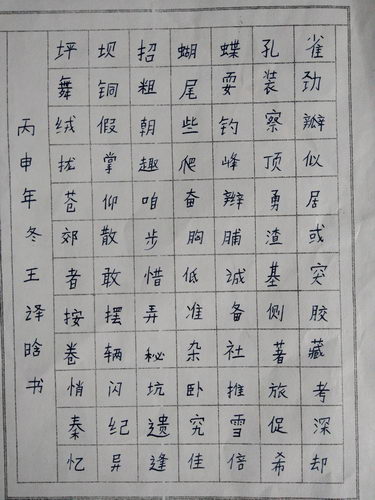 坪坝招蝴蝶孔雀
舞铜粗尾耍装劲
绒假朝些钓察瓣
拢掌趣爬峰顶似
苍仰咱奋辫勇居
郊散步胸脯渣或
者敢惜低诚基突
按摆弄准备侧胶
卷辆秘杂社著藏
悄闪坑卧推旅考
秦纪遗究雪促深
忆异逢佳倍希却
丙申年冬王译晗书